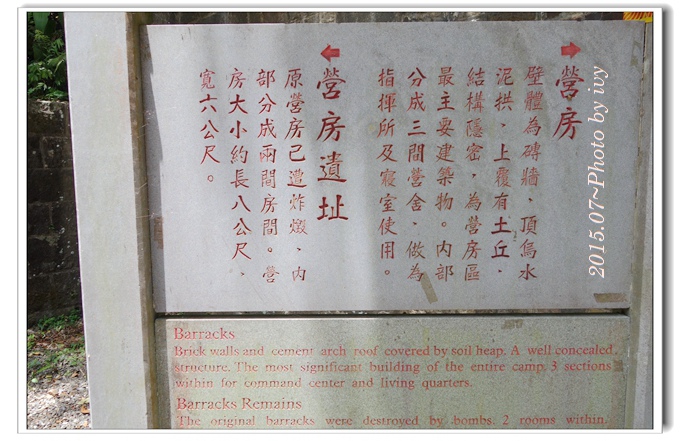 營房
壁體為磚牆、頂為水
泥拱、上覆有土丘、
結構隱密，為營房區
最主要建築物。內部
分成三間營舍、做為
指揮所及寢室使用。
營房遺址
原營房已遭炸燬、內
部分成兩間房間。營
房大小約長八公尺、
寬六公尺。
Barracks
Brick walls and cement arch roof covered by soil heap. A well concealed
structure. The most significant building of the entire camp. 3 sections
within for command center and living quarters.
Barracks Remains
The original barracks were destroyed by bombs. 2 rooms within.
2015.07~Photo by ivy